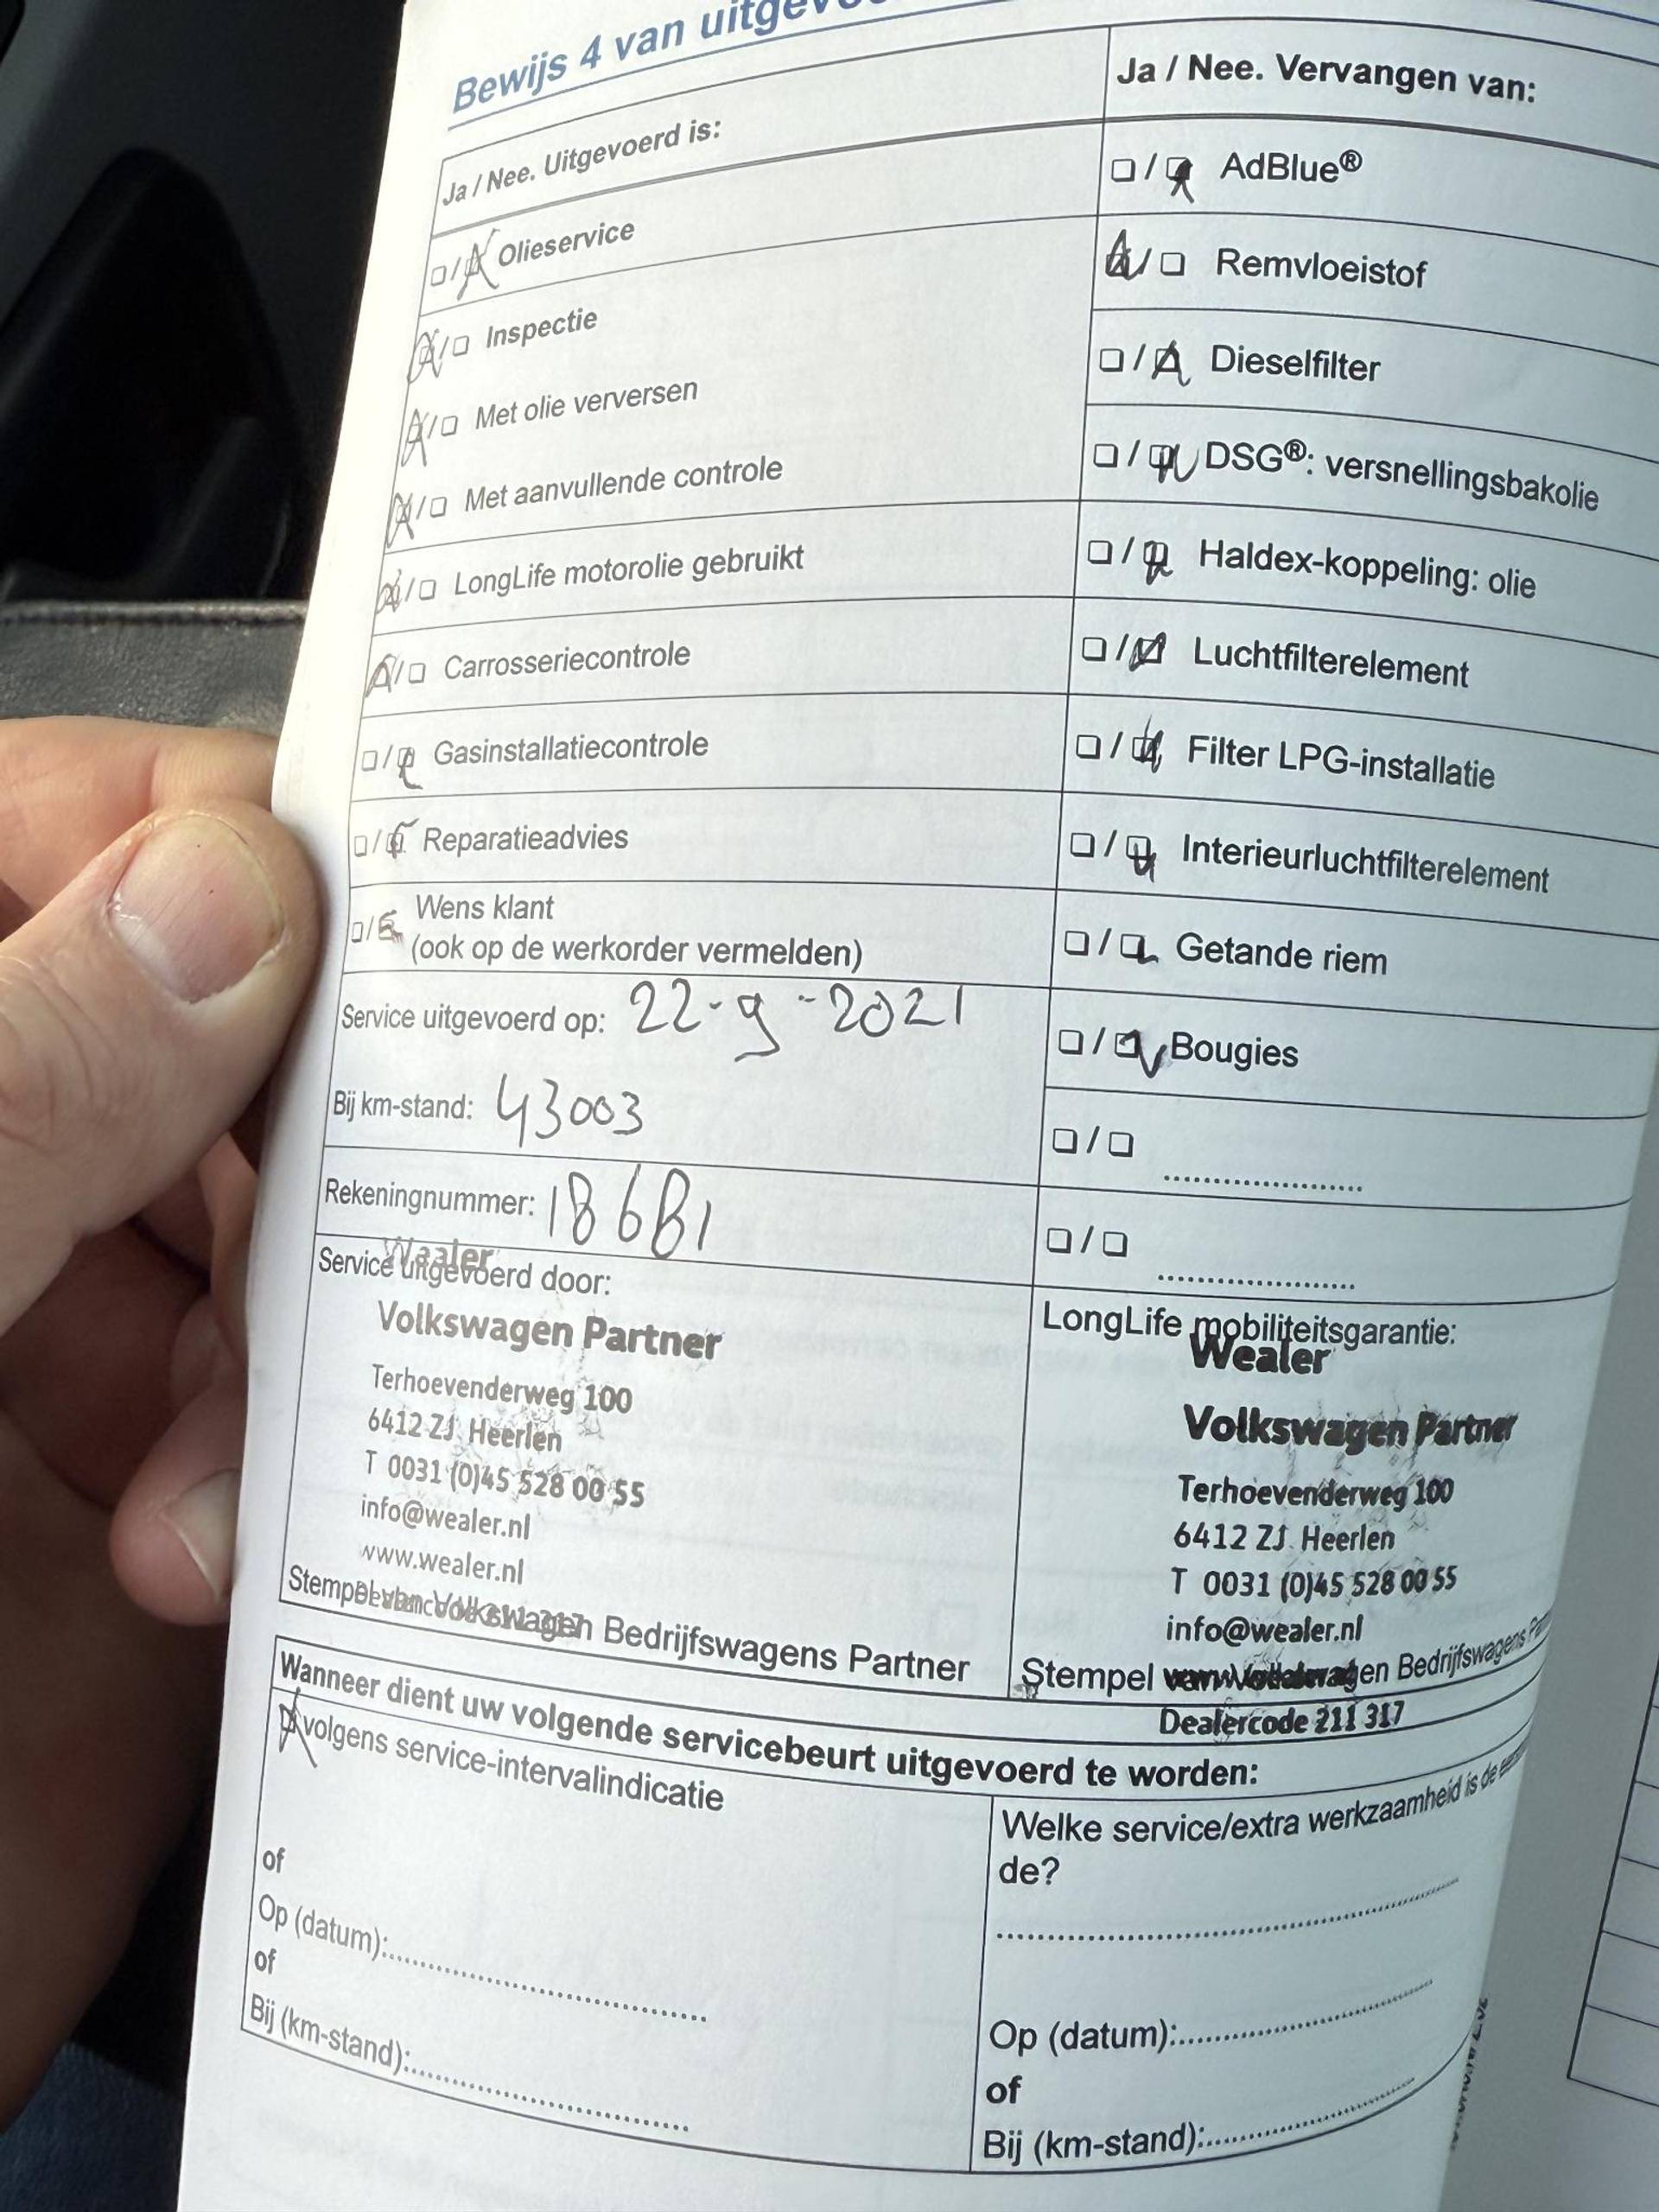 Bewijs 4 van
Ja / Nee. Uitgevoerd is:
☐/☒ Olieservice
☒/☐ Inspectie
☒/☐ Met olie verversen
☒/☐ Met aanvullende controle
☒/☐ LongLife motorolie gebruikt
☒/☐ Carrosseriecontrole
☐/☒ Gasinstallatiecontrole
☐/☒ Reparatieadvies
☐/☒ Wens klant
(ook op de werkorder vermelden)
Service uitgevoerd op: 22-9-2021
Bij km-stand: 43003
Rekeningnummer:
Service uitgevoerd door:
Wealer
Volkswagen Partner
Terhoevenderweg 100
6412 ZJ Heerlen
T 0031 (0)45 528 00 55
info@wealer.nl
www.wealer.nl
Stempel van Volkswagen Bedrijfswagens Partner
Ja / Nee. Vervangen van:
☐/☒ AdBlue®
☒/☐ Remvloeistof
☐/☒ Dieselfilter
☐/☒ DSG®: versnellingsbakolie
☐/☒ Haldex-koppeling: olie
☐/☒ Luchtfilterelement
☐/☒ Filter LPG-installatie
☐/☒ Interieurluchtfilterelement
☐/☒ Getande riem
☐/☒ Bougies
☐/☐ ....................
☐/☐ ....................
LongLife mobiliteitsgarantie:
Wealer
Volkswagen Partner
Terhoevenderweg 100
6412 ZJ Heerlen
T 0031 (0)45 528 00 55
info@wealer.nl
Stempel van Volkswagen Bedrijfswagens
Dealercode 211 317
Wanneer dient uw volgende servicebeurt uitgevoerd te worden:
☒ volgens service-intervalindicatie
of
Op (datum):..............................
of
Bij (km-stand):..............................
Welke service/extra werkzaamheid is de
de?
........................................
Op (datum):..............................
of
Bij (km-stand):..............................